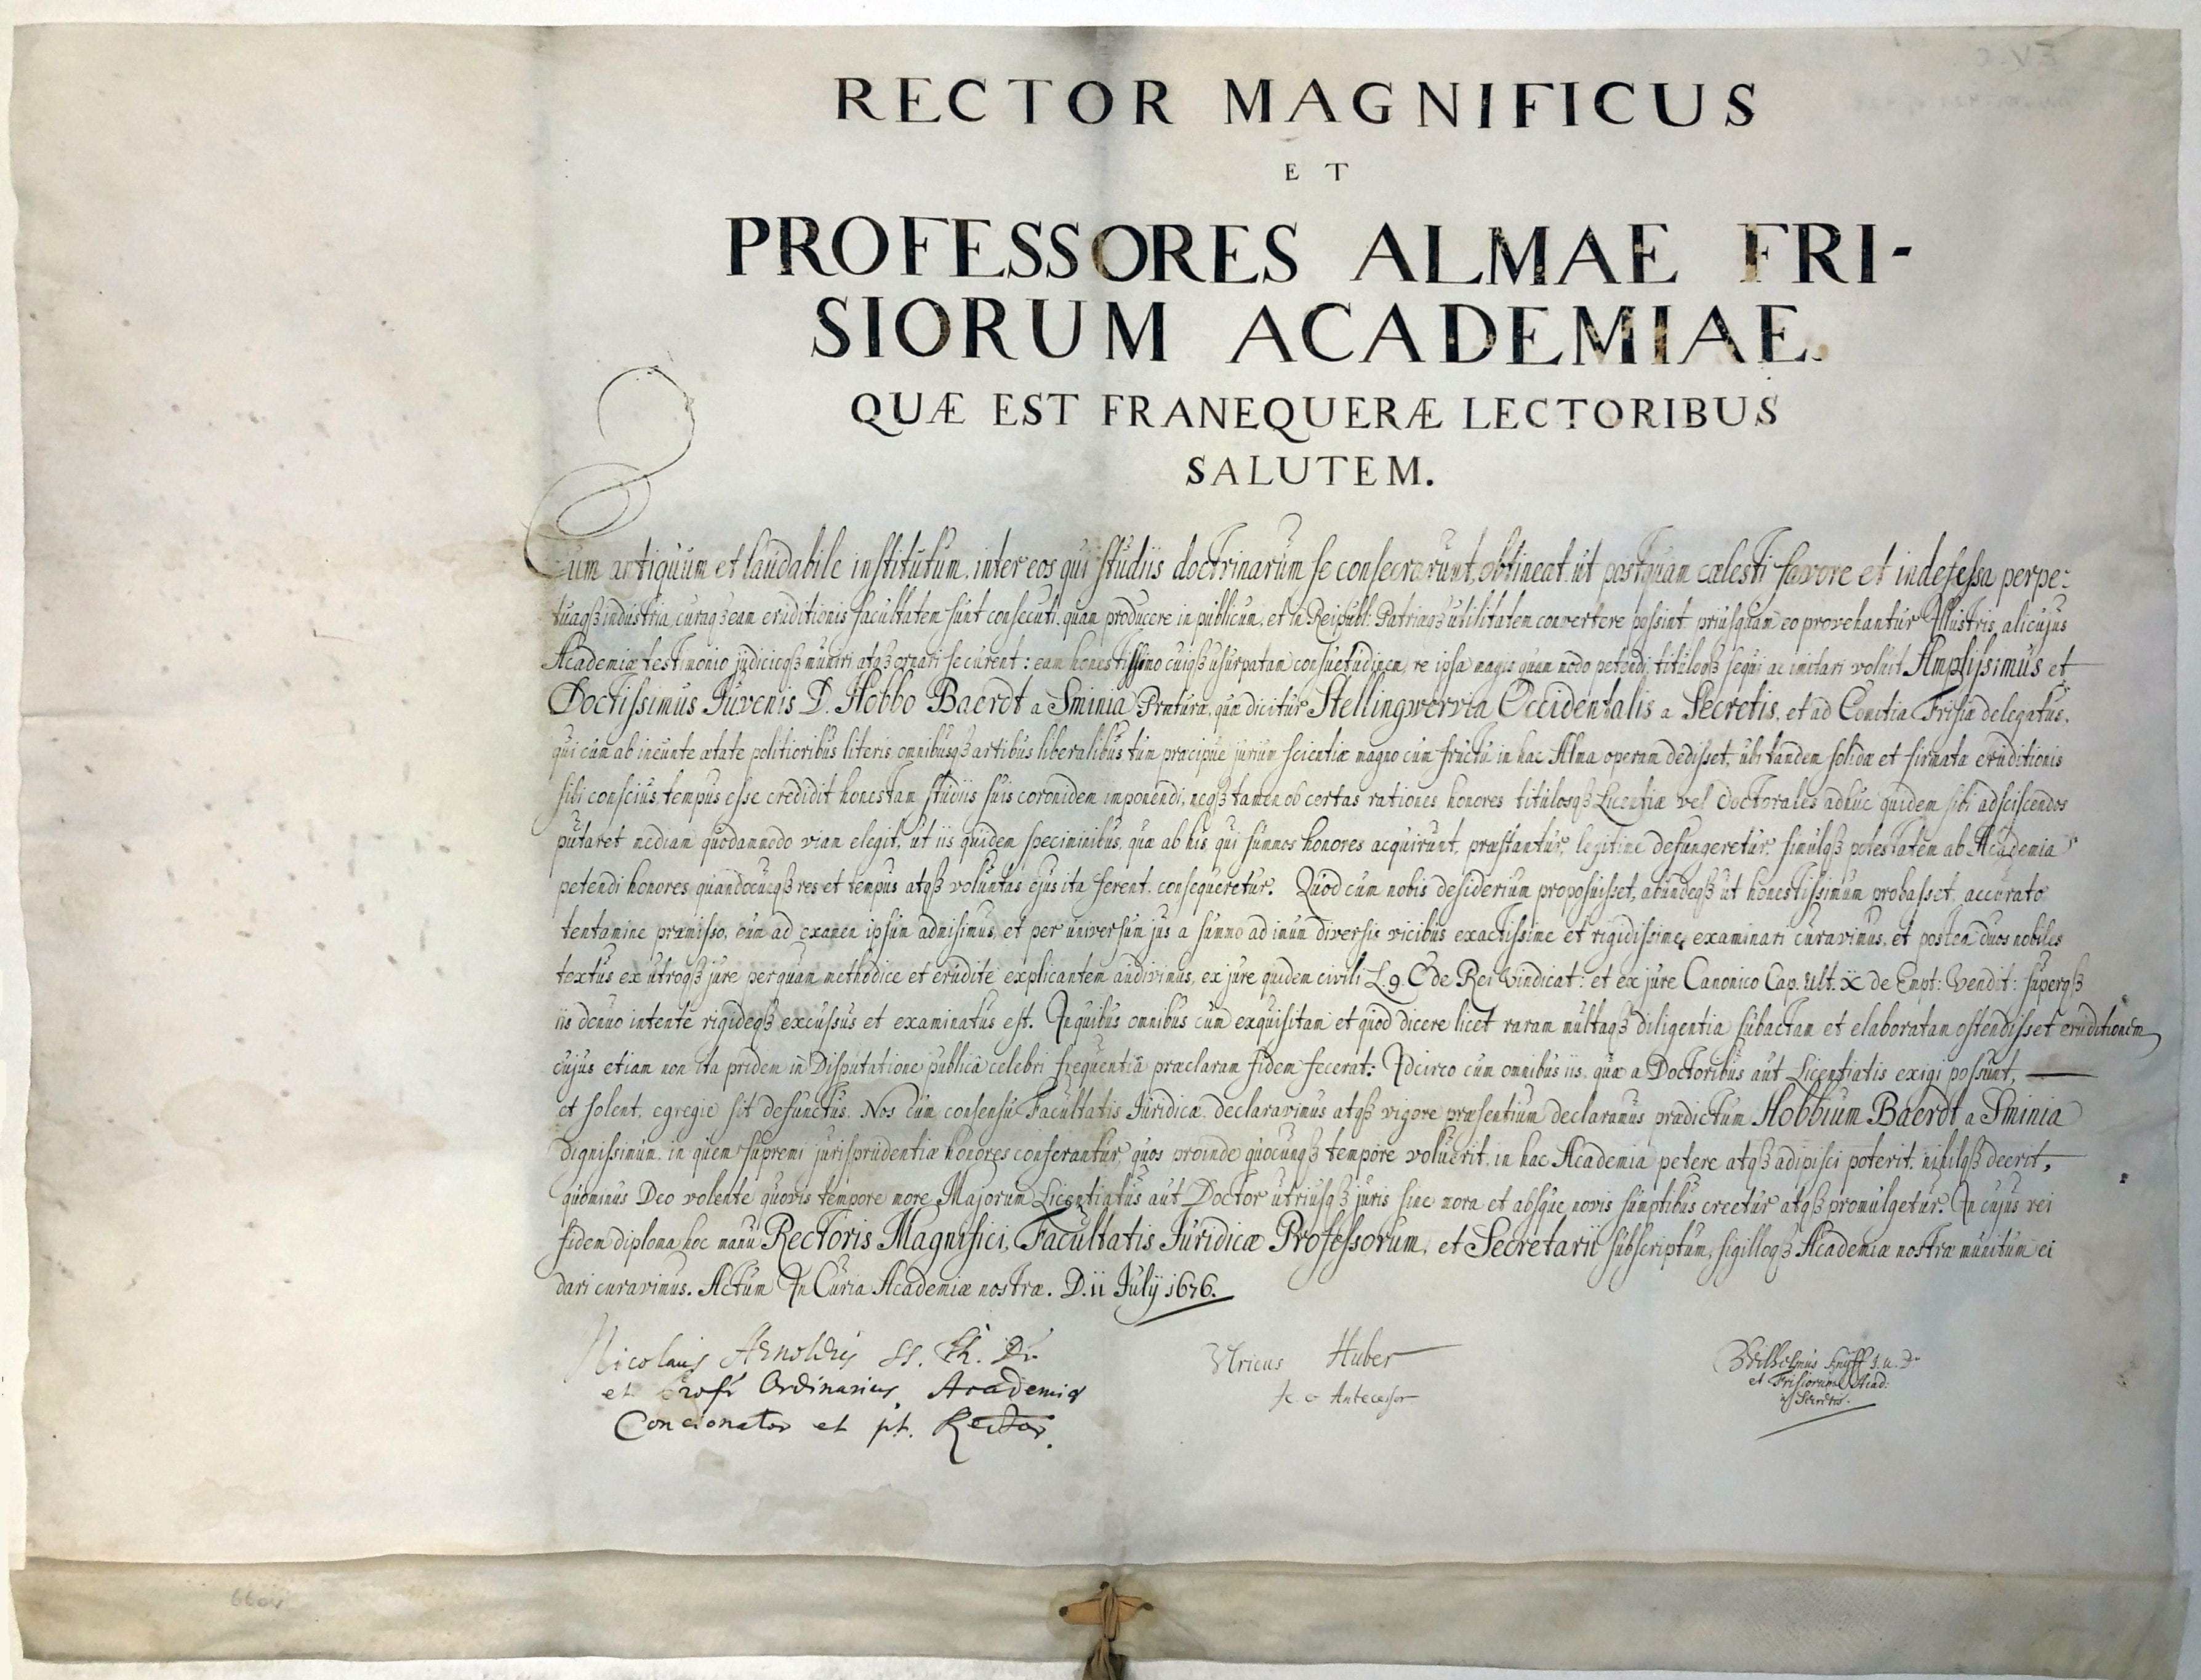 RECTOR MAGNIFICUS
ET
PROFESSORES ALMAE FRI-
SIORUM ACADEMIAE.
QUÆ EST FRANEQUERÆ LECTORIBUS
SALUTEM.
Cum antiquum et laudabile institutum, inter eos qui studiis doctrinarum se consecrarunt, obtineat, ut postquam cælesti favore et indefessa perpe-
tuaqȝ industria, curaqȝ eam eruditionis facultatem sunt consecuti, quam producere in publicum, et in Reipubl: Patriæqȝ utilitatem convertere possint priusquam eo provehantur Illustris alicujus
Academiæ testimonio judicioqȝ muniri atqȝ ornari se curent: eam honestissimo cuiqȝ usurpatam consuetudinem, re ipsa magis quam modo petendi, titulosqȝ sequi ac imitari voluit Amplissimus et
Doctissimus Juvenis D. Hobbo Baerdt a Sminia Præturæ, quæ dicitur Stellingwervia Occidentalis a Secretis, et ad Comitia Frisiæ delegatus,
qui cum ab ineunte ætate politioribus literis, omnibusqȝ artibus liberalibus tum præcipue jurium scientiæ magno cum fructu in hac Alma operam dedisset, ubi tandem solidæ et firmatæ eruditionis
sibi conscius, tempus esse credidit honestam studiis suis coronidem imponendi, neqȝ tamen ob certas rationes, honores titulosqȝ Licentiæ vel Doctorales adhuc quidem sibi adsciscendos
putaret mediam quodammodo viam elegit, ut iis quidem speciminibus, quæ ab his, qui summos honores acquirunt, præstantur, legitime defungeretur, simulqȝ potestatem ab Academia
petendi honores quandocunqȝ res et tempus atqȝ voluntas ejus ita ferent, consequeretur. Quod cum nobis desiderium proposuisset, abundeqȝ ut honestissimum probasset, accurato
tentamine præmisso, eum ad examen ipsum admisimus, et per universum jus a summo ad imum diversis vicibus exactissime et rigidissime examinari curavimus, et postea duos nobiles
textus ex utroqȝ jure perquam methodice et erudite explicantem audivimus, ex jure quidem civili L. 9. C de Rei Vindicat: et ex jure Canonico Cap. ult. X de Empt: Vendit: superqȝ
iis denuo intente rigideqȝ excussus et examinatus est. In quibus omnibus cum exquisitam et quod dicere licet raram multaqȝ diligentia subactam et elaboratam ostendisset eruditionem
cujus etiam non ita pridem in Disputatione publicâ celebri frequentiâ præclaram fidem fecerat. Idcirco cum omnibus iis, quæ a Doctoribus aut Licentiatis exigi possunt,
et solent, egregie sit defunctus. Nos cum consensu Facultatis Juridicæ, declaravimus atqȝ vigore præsentium declaramus prædictum Hobbium Baerdt a Sminia
dignissimum, in quem supremi jurisprudentiæ honores conferantur, quos proinde quocunqȝ tempore voluerit, in hac Academia petere atqȝ adipisci poterit, nihilqȝ deerit,
quominus Deo volente quovis tempore more Majorum Licentiatus aut Doctor utriusqȝ juris sine mora et absque novis sumptibus creetur atqȝ promulgetur. In cujus rei
fidem diploma hoc manu Rectoris Magnifici, Facultatis Juridicæ Professorum, et Secretarii subscriptum, sigilloqȝ Academiæ nostræ munitum ei
dari curavimus. Actum In Curia Academiæ nostræ. D. 11 July 1676.
Nicolaus Arnoldus SS. Th. Dr.
et Profr Ordinarius, Academiæ
Concionator et pt. Rector.
Ulricus Huber
Antecessor
Wilhelmus Knijff J. u. Dr
et Frisiorum Acad:
a Secretis.